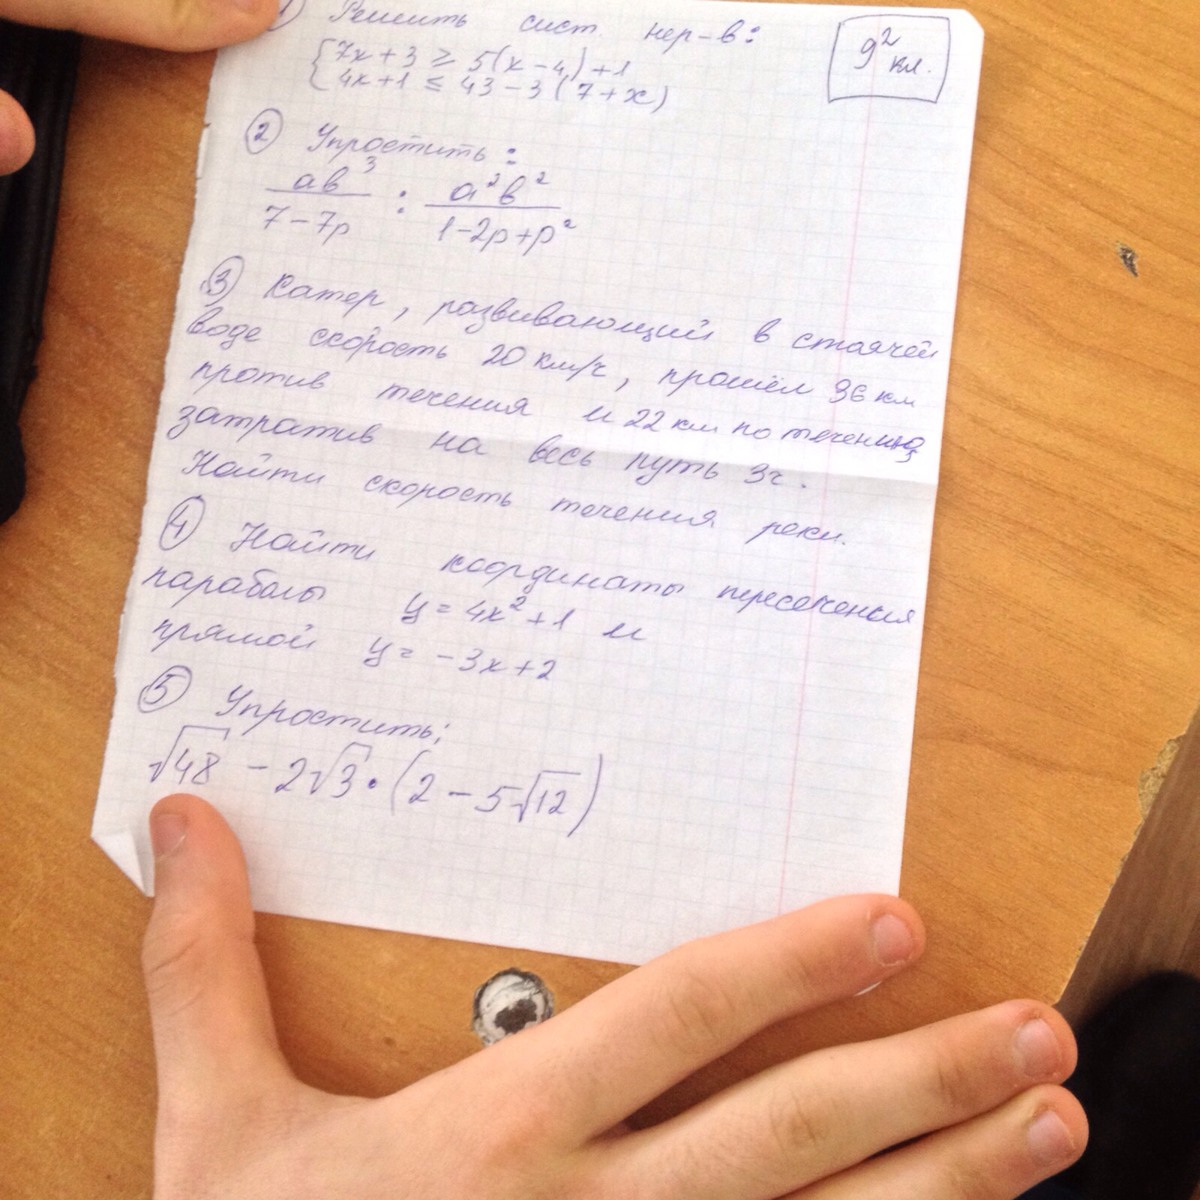 1 Решить сист. нер-в:
9² кл.
{ 7x + 3 ≥ 5(x-4) + 1
4x+1 ≤ 43 - 3(7+x)
2 Упростить:
ab³ / 7-7p : a²b² / 1-2p+p²
3 Катер, развивающий в стоячей
воде скорость 20 км/ч, прошёл 36 км
против течения и 22 км по течению,
затратив на весь путь 3ч.
Найти скорость течения реки.
4 Найти координаты пересечения
параболы y = 4x² + 1 и
прямой y = -3x + 2
5 Упростить:
√48 - 2√3 · (2 - 5√12)